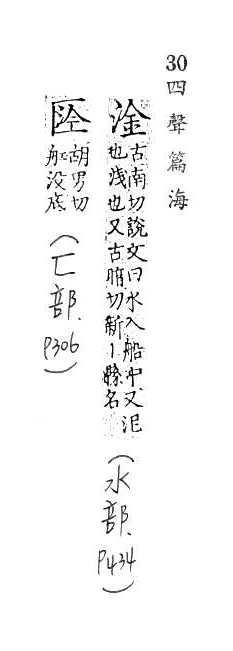 30四聲篇海
淦古南切說文曰水入船中又泥
也淺也又古暗切新〡縣名(水部、P434)
胡男切
船没底(匸部、P306)